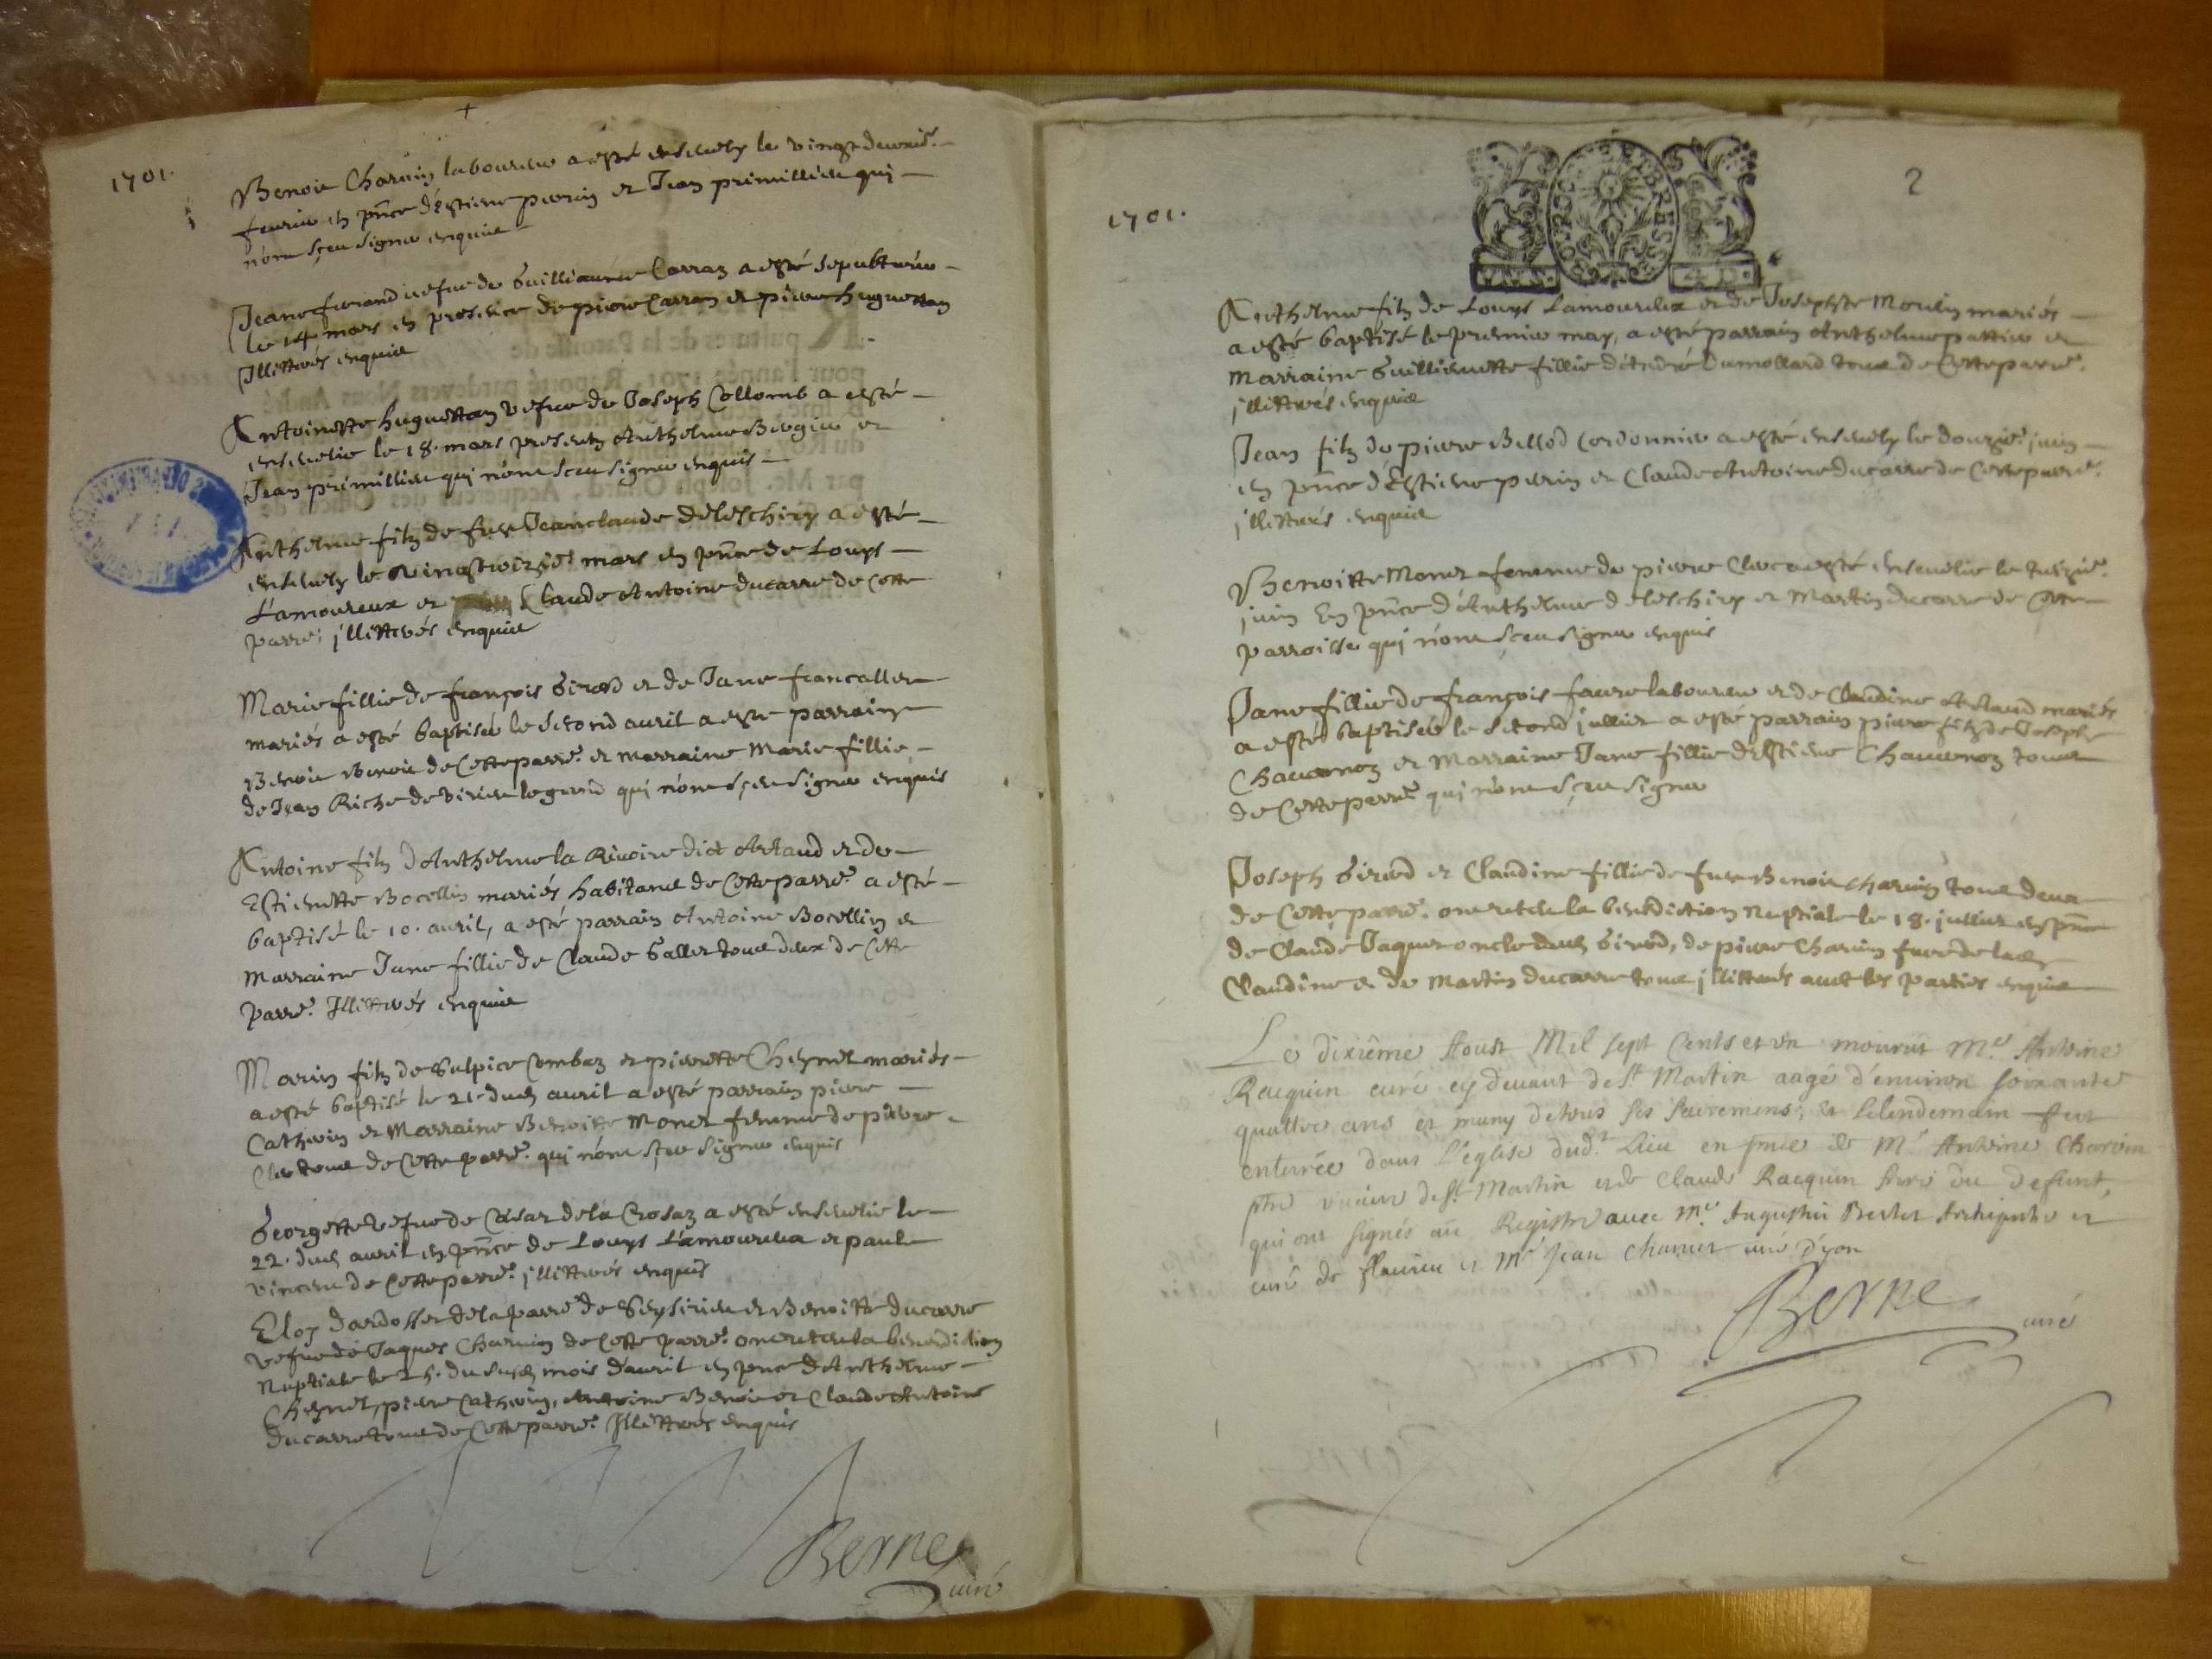 1701.
Benoit Charvin laboureur a esté ensevely le vingt deuxie.
fevrier en pnce d'Estiene perrin et Jean primillieu qui
n'ont sçeu signer enquis
Jeane ferrand vefve de Guilliaume Carraz a esté sepulturée
le 14 mars en presence de piere Carraz et piere huguettan
Illittérés enquis
Antoinette huguettan vefve de Joseph Collomb a esté
ensevelie le 18. mars presents Anthelme Bergier et
Jean primillieu qui n'ont sceu signer enquis
Anthelme filz de feu Jean claude deleschiry a esté
ensevely le vingt troizie. mars en pnce de Louys
L'amoureux et Claude Antoine ducarre de Cette
parre. jllittérés enquis
Marie fillie de françois Girod et de Jane francallet
mariés a esté baptisée le second avril a esté parrain
Benoit Benoit de Cette parre. et marraine Marie fillie
de Jean Riche de Virieu le grand qui n'ont sçeu signer enquis
Antoine filz d'Anthelme la Rivoire dict Artaud et de
Estienette Bocellin mariés habitans de Cette parre. a esté
baptisé le 10. avril, a esté parrain Antoine Bocellin et
marraine Jane fillie de Claude Gallet tous deux de Cette
parre. Illittérés enquis
Marin filz de Sulpice Combaz et pierette Cheynet mariés
a esté baptisé le 21. dud. avril a esté parrain piere
Catherin et Marraine Benoitte Monet femme de pierre
Clet tous de Cette parre. qui n'ont sçeu signer enquis
Georgette vefve de César de la Crosaz a esté ensevelie le
22. dud. avril en pnce de Louys L'amoureux et paul
vincent de Cette parre. jllittérés enquis
Eloy dardosset de la parre. de Seysirieu et Benoitte ducarre
vefve de Jaques Charvin de Cette parre. ont reteu la benediction
Nuptiale le 25. du susd. mois d'avril en pnce d'Anthelme
Cheynet, piere Catherin, Antoine Benoit et Claude Antoine
ducarre tous de Cette parre. Illittérés enquis
Berne
curé
2
1701.
Anthelme filz de Louys Lamoureux et de Josephte Moulin mariés
a esté baptisé le premier may, a esté parrain Anthelme pattier et
Marraine Guillienette fillie d'André Dumollard tous de Cette parre.
jllittérés enquis
Jean filz de piere Bellod Cordonnier a esté ensevely le douzie. juin
en pnce d'Estiene perrin et Claude Antoine ducarre de Cette parre.
jllittérés enquis
Benoitte Monet femme de piere Clet a esté ensevelie le treizie.
juin En pnce d'Anthelme deleschiry et Martin ducarre de Cette
parroisse qui n'ont sceu signer enquis
Jane fillie de françois favre laboureur et de Claudine Artaud mariés
a esté baptisée le second jullier a esté parrain piere filz de Joseph
Chavornoz et Marraine Jane fillie d'Estiene Chavornoz tous
de Cette parre. qui n'ont sçeu signer
Joseph Girod et Claudine fillie de feu Benoit charvin tous deux
de Cette parre. ont reteu la benediction Nuptiale le 18. jullier en pnce
de Claude Jaquet oncle dud. Girod, de piere Charvin frere de lad.
Claudine et de Martin ducarre tous jllittérés avec les parties enquis
Le dixiême Aoust Mil sept Cents et vn mourut Me. Antoine
Racquin curé cy devant de St. Martin aagé d'environ soixante
quattre ans et muny de tous ses sacremens, et le lendemain fut
enterrée dans L'église dud.t Lieu en pnce de Mr. Antoine Charvin
ptre vicaire de St. Martin et de Claude Racquin frere du defunt,
qui ont signés au Registre avec Me. Augustin Berlet Archiprtre et
curé de flaxieu et Me Jean Charvet curé d'yon
Berne
curé